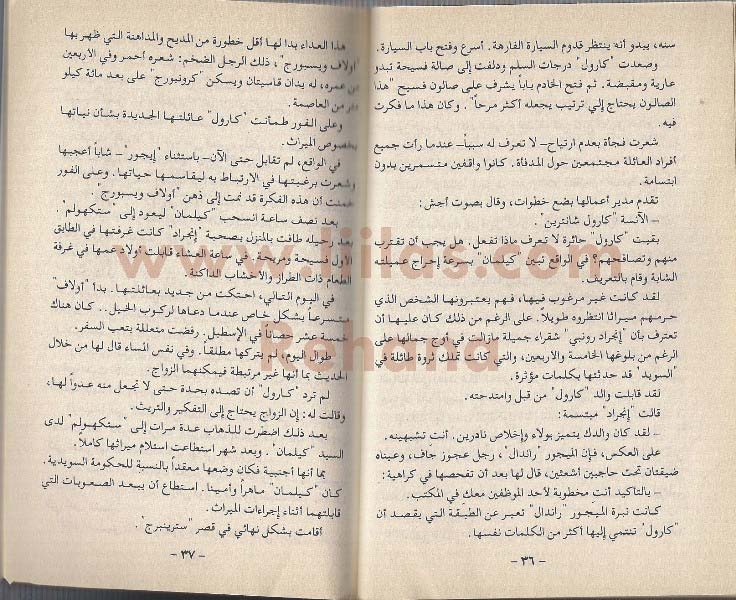 سنه، يبدو أنه ينتظر قدوم السيارة الفارهة. أسرع وفتح باب السيارة.
وصعدت "كارول" درجات السلم ودلفت إلى صالة فسيحة تبدو
عارية ومقبضة. ثم فتح الخادم باباً يشرف على صالون فسيح "هذا
الصالون يحتاج إلي ترتيب يجعله أكثر مرحاً". وكان هذا ما فكرت
فيه.
شعرت فجأة بعدم ارتياح- لا تعرف له سبباً- عندما رأت جميع
أفراد العائلة مجتمعين حول المدفأة. كانوا واقفين متسمرين بدون
ابتسامة.
تقدم مدير أعمالها بضع خطوات، وقال بصوت أجش:
- الآنسة "كارول شانترين".
بقيت "كارول" حائرة لا تعرف ماذا تفعل. هل يجب أن تقترب
منهم وتصافحهم؟ في الواقع تبين "كيلمان" بسرعة إحراج عميلته
الشابة وقام بالتعريف.
لقد كانت غير مرغوب فيها، فهم يعتبرونها الشخص الذي
حرمهم ميراثا انتظروه طويلاً. على الرغم من ذلك كان عليها أن
تعترف بأن "إنجراد رونسي" شقراء جميلة مازالت في أوج جمالها على
الرغم من بلوغها الخامسة والاربعين، والتي كانت تملك ثروة طائلة في
"السويد" قد حدثتها بكلمات مؤثرة.
لقد قابلت والد "كارول" من قبل وامتدحته.
قالت "إنجراد" مبتسمة:
- لقد كان والدك يتميز بولاء وإخلاص نادرين. أنت تشبهينه.
على العكس، فإن الميجور "راندال"، رجل عجوز جاف، وعيناه
ضيقتان تحت حاجبين أشعثين، قال لها بعد أن تفحصها في كراهية:
- بالتأكيد أنت مخطوبة لأحد الموظفين معك في المكتب.
كانت نبرة الميجور "راندال" تعبر عن الطبقة التي يقصد أن
"كارول" تنتمي إليها أكثر من الكلمات نفسها.
- ٣٦ -
هذا العداء بدا لها أقل خطورة من المديح والمداهنة التي ظهر بها
"أولاف ويسبورج"، ذلك الرجل الضخم: شعره أحمر وفي الاربعين
من عمره، له يدان قاسيتان ويسكن "كرونبورج" على بعد مائة كيلو
متر من العاصمة.
وعلى الفور طمأنت "كارول" عائلتها الجديدة بشأن نياتها
بخصوص الميراث.
في الواقع، لم تقابل حتى الآن- باستثناء "إيجور"- شاباً أعجبها
وشعرت برغبتها في الارتباط به ليقاسمها حياتها. وعلى الفور
خمنت أن هذه الفكرة قد نمت إلى ذهن "أولاف ويسبورج".
بعد نصف ساعة انسحب "كيلمان" ليعود إلى "ستكهولم".
بعد رحيله طافت بالمنزل بصحبة "إنجراد" كانت غرفتها في الطابق
الاول فسيحة ومريحة. في ساعة العشاء قابلت أولاد عمها في غرفة
الطعام ذات الطراز والاخشاب الداكنة.
في اليوم التالي، احتكت من جديد بعائلتها. بدأ "أولاف"
متسرعاً بشكل خاص عندما دعاها لركوب الخيل.. كان هناك
خمسة عشر حصاناً في الإسطبل. رفضت متعللة بتعب السفر.
طوال اليوم، لم يتركها مطلقاً. وفي نفس المساء قال لها من خلال
الحديث بما أنها غير مرتبطة فيمكنهما الزواج.
لم ترد "كارول" أن تصده بحدة حتى لا تجعل منه عدواً لها،
وقالت له: إن الزواج يحتاج إلى التفكير والتريث.
بعد ذلك اضطرت للذهاب عدة مرات إلى "ستكهولم" لدى
السيد "كيلمان". وبعد شهر استطاعت استلام ميراثها كاملاً.
بما أنها أجنبية فكان وضعها معقداً بالنسبة للحكومة السويدية.
كان "كيلمان" ماهراً وأمينا. استطاع أن يبعد الصعوبات التي
قابلتهما أثناء إجراءات الميراث.
أقامت بشكل نهائي في قصر "سترينبرج".
- ٣٧ -
www.diilas.com
Rehana